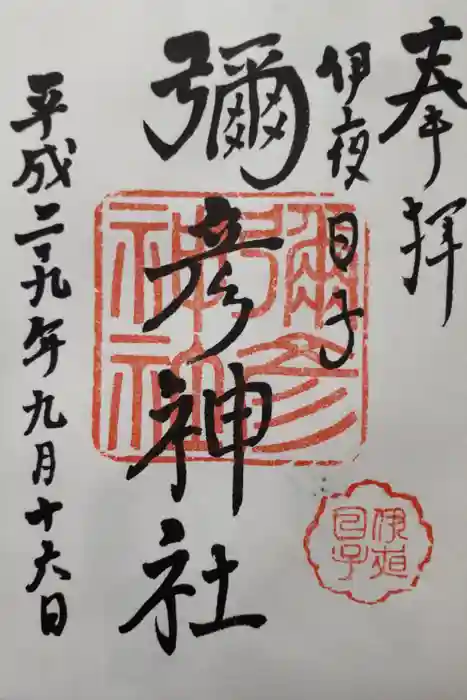 奉拝
伊夜日子
彌彦神社
平成二十九年九月十六日
彌彦神社
伊夜日子